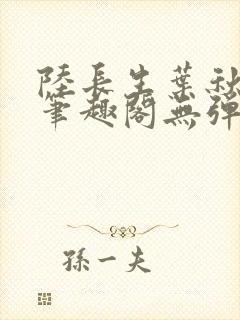 陸長生葉秋
筆趣閣無彈
孫一夫